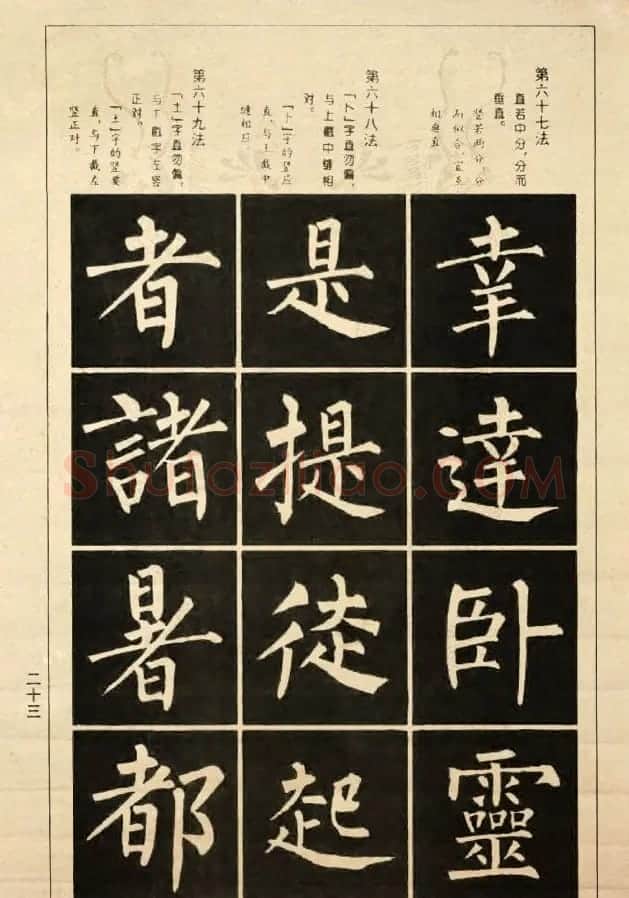 第六十七法
直若中分，分而
垂直。
竖若两分，分
而似合，宜乎
相垂直
幸
達
卧
靈
第六十八法
「卜」字直勿偏，
与上截中缝相
对。
「卜」字的竖应
直，与上截中
缝相应
是
提
徒
起
第六十九法
「土」字直勿偏，
与下截字左竖
正对。
「土」字的竖要
直，与下截左
竖正对。
者
諸
暑
都
二十三
Shufaziliao.com